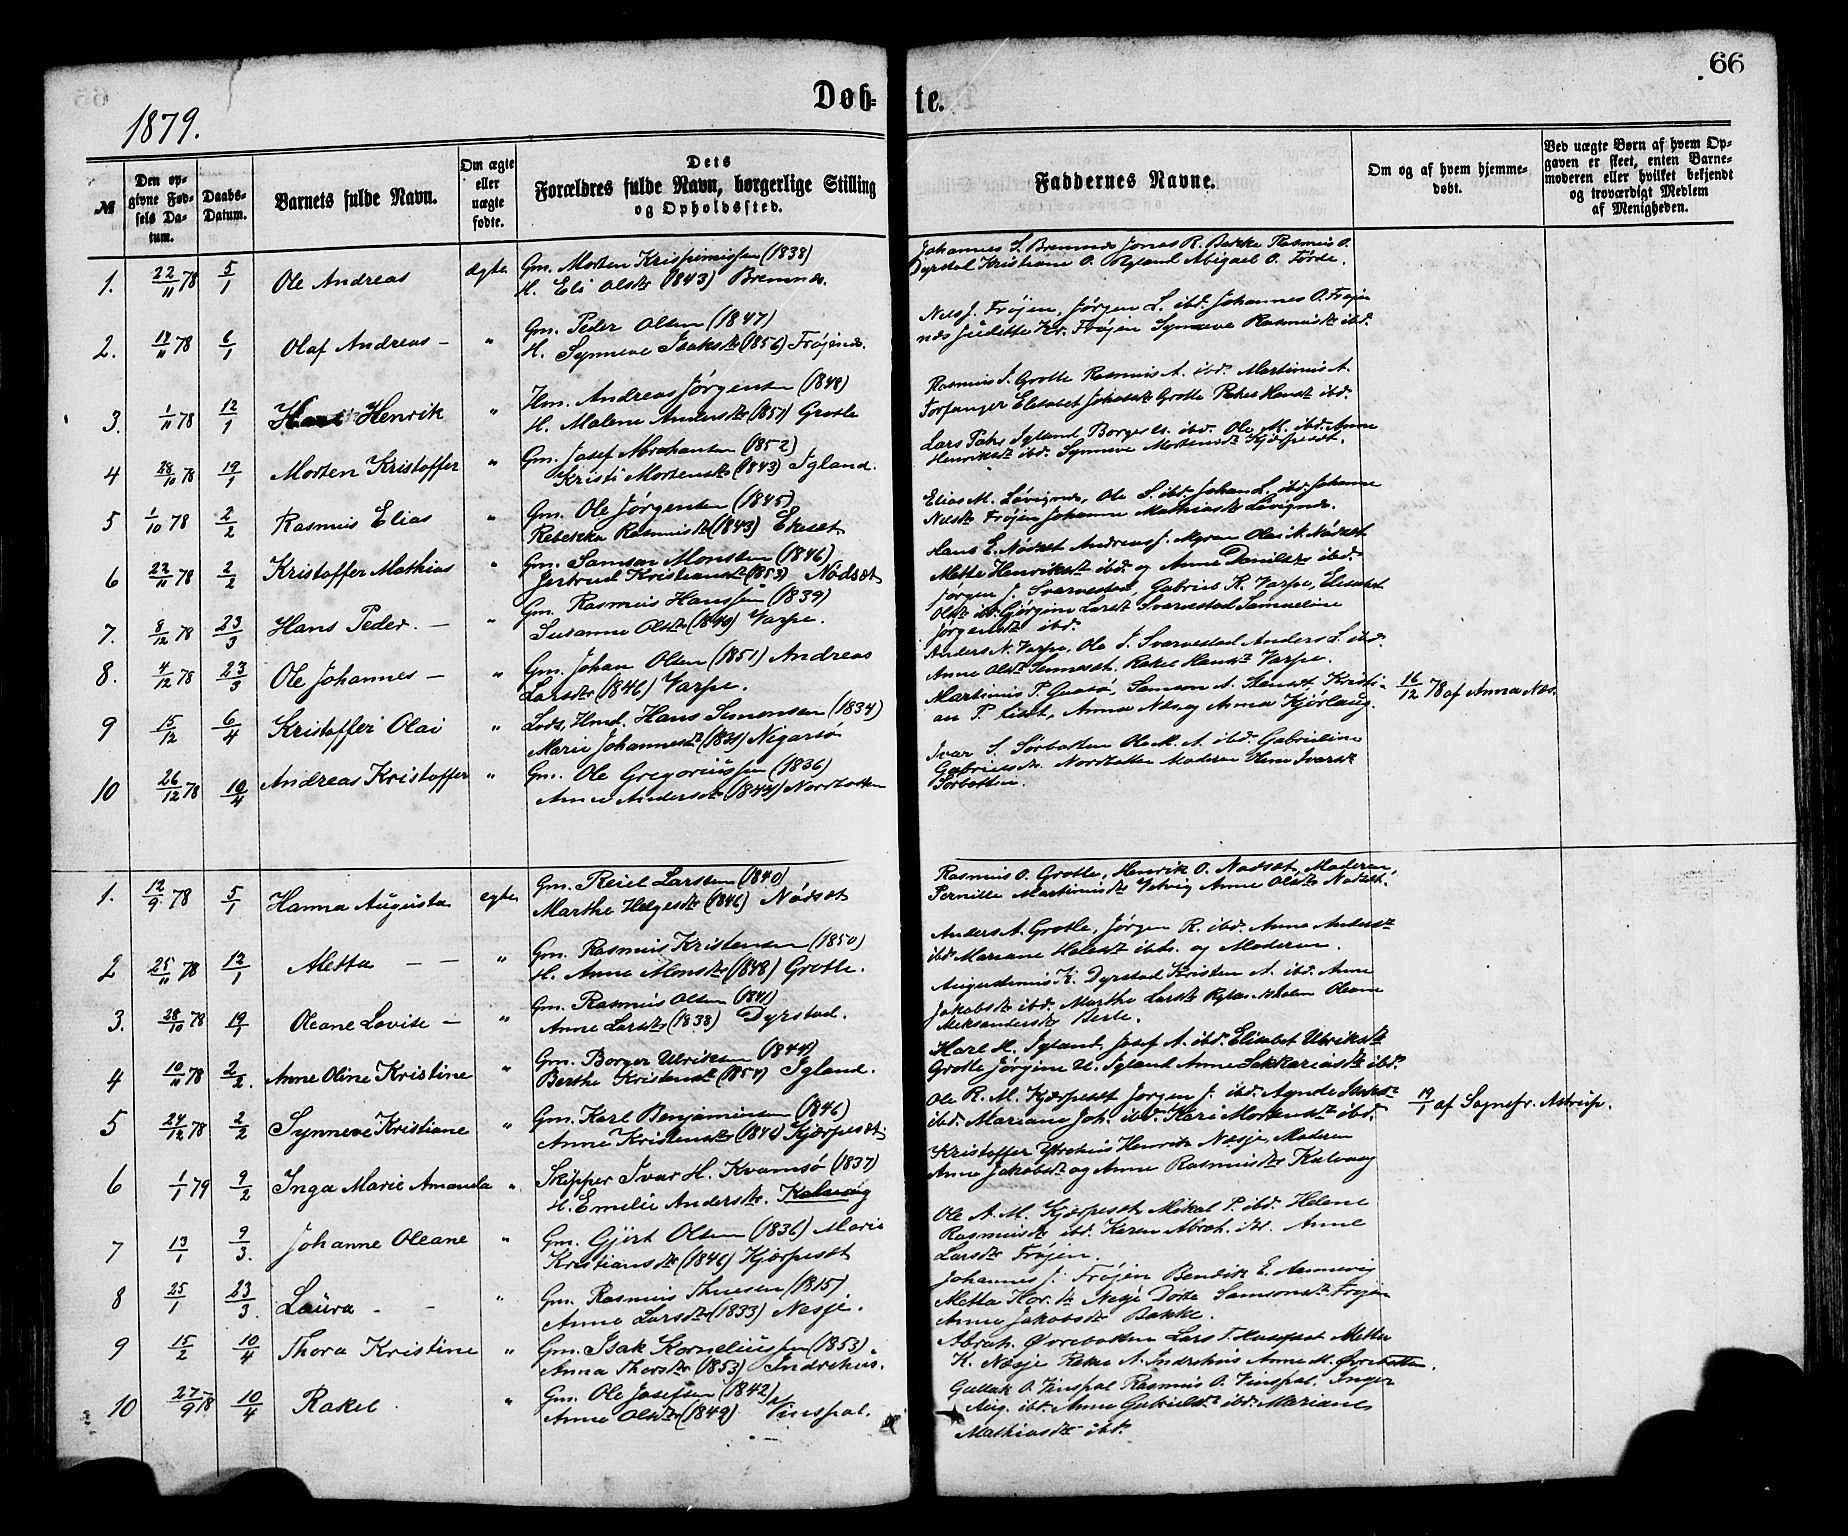 66
Døb- te.
1879.
№
Den op-
givne Fød-
sels Da-
tum.
Daabs-
Datum.
Barnets fulde Navn.
Om ægte
eller
uægte
fødte.
Dets
Forældres fulde Navn, borgerlige Stilling
og Opholdssted.
Faddernes Navne.
Om og af hvem hjemme-
døbt.
Ved uægte Børn af hvem Op-
gaven er skeet, enten Barne-
moderen eller hvilket bekjendt
og troværdigt Medlem
af Menigheden.
1. 22/11 78 5/1 Ole Andreas ægte Gm. Morten (1838)
H. Eli Olsdtr (1843) Bremnes.
Johannes S. Bremnes Jonas R. Bakke Rasmus O.
Dyrstad Kristiane O. Ryland Abigael O. Førde.
2. 6/1 Olaf Andreas – " Gm. Peder Olsen (1847)
H. Synneve Isaksdtr (1856) Frøjenes.
Nils J. Frøjen, Jørgen L. ibd. Johannes O. Frøjen
Juditte Kr. Frøjen Synneve Rasmusdtr ibd.
3. 1/11 78 12/1 Henrik " Hm. Andreas Jørgensen (1848)
H. Malene Andersdtr (1857) Grotle
Rasmus J. Grotle Rasmus A. ibd. Martinus A.
Torfanger Elisabet Grotle Rakel Hansdtr ibd.
4 28/10 78 19/1 Morten Kristoffer " Gm. Josef Abrahamsen (1852)
Kristi Mortensdtr (1843) Igland.
Lars Igland Borger ibd. Ole M. ibd. Anne
Henriksdtr ibd. Synneve Mortensdtr Kjærpeset.
5 1/10 78 2/2 Rasmus Elias " Gm. Ole Jørgensen (1845)
Rebekka Rasmusdtr (1843)
Elias M. Løvignes, Ole S. ibd. Johan L. ibd. Johanne
Nilsdtr Frøjen Johanne Mathiasdtr Løvignes.
6 22/11 78 2/2 Kristoffer Mathias " Gm. Samson Monsen (1846)
Jertrud Kristiansdtr (1853) Nødset
Hans E. Nødset Andreas J. Myren Ole N. Nødset
Mette Henriksdtr ibd. og Anne Danilsdtr ibd.
7. 8/12 78 23/3 Hans Peder. – " Gm. Rasmus Hanssen (1839)
Susanne Olsdtr (1840) Varpe.
Jørgen J. Svarvestad, Gabriel K. Varpe, Elisabet
Olsdtr ibd. Gjørgine Larsdtr Svarvestad Samueline
Jørgensdtr ibd.
8. 4/12 78 23/3 Ole Johannes – " Gm. Johan Olsen (1851) Andreas
Larsdtr (1846) Varpe.
Anders N. Varpe, Ole J. Svarvestad Anders L. ibd.
Anne Olsdtr Rakel Hansdtr Varpe.
9 15/12 6/4 Kristoffer Olai " Lods, Hmd. Hans Simonsen (1834)
Marie Johannesdtr (1831) Nigarsø
Martinus P. Samson A. Kristi-
an P. Anna Næs og Anna Kjørlaug.
16/12 78 af Anna Næs.
10 26/12 78 10/4 Andreas Kristoffer " Gm. Ole Gregoriussen (1836)
Anne Andersdtr (1844) Nordbotten
Ivar S. Sørbotten Ole M. A. ibd. Gabrieline
Gabrielsdtr. Nordbotten Moderen Oline Ivarsdtr
Sørbotten.
1. 12/9 78 5/1 Hanna Augusta egte Gm. Reiel Larssen (1840)
Marthe Helgesdtr (1846) Nødset
Rasmus O. Grotle, Henrik O. Nødset, Moderen,
Pernille Martinusdtr Vetvig Anne Olsdtr Nødset.
2 25/11 78 12/1 Metta – – " Gm. Rasmus Kristensen (1850)
H. Anne Monsdtr (1848) Grotle.
Anders A. Grotle, Jørgen R. ibd. Anne Andersdtr
ibd. Mariane ibd. og Moderen.
3. 28/10 78 19/1 Oleane Lovise – " Gm. Rasmus Olsen (1841)
Anne Larsdtr (1838) Dyrstad.
Augustinius K. Dyrstad Kristen A. ibd. Anne
Jakobsdtr ibd. Marthe Larsdtr Oleane
Aleksandersdtr Berle.
4 10/11 78 2/2. Anne Oline Kristine " Gm. Borger Ulriksen (1844)
Berthe Kristensdtr (1854) Igland.
Karl H. Igland, Josef A. ibd. Elisabet Ulriksdtr
Grotle Jørgine U. Igland Anne Sakkariasdtr ibd.
5 24/12 78 2/2 Synneve Kristiane " Gm. Karl Benjaminsen (1846)
Anne Kristensdtr Kjærpeset.
Ole R. M. Kjærpeset Jørgen J. ibd. Agnete Isaksdtr
ibd. Mariane Joh. ibd. Kari Mortensdtr ibd.
19/1 af Sognepr. Astrup.
6 1/1 79 9/2 Inga Marie Amanda " Skipper Ivar H. Kvamsø (1837)
H. Emelie Andersdtr. Kalvaag
Kristoffer Henrik Nesje, Moderen
Anne Jakobsdtr og Anne Rasmusdtr Kalvaag
7 13/1 9/3. Johanne Oleane " Gm. Gjert Olsen (1836) Marie
Kristiansdtr (1846) Kjærpeset
Ole A. M. Kjærpeset, Mikal P. ibd. Helene
Rasmusdtr ibd. Karen Abrah. ibd. Anne
Larsdtr Frøjen.
8 25/1 23/3 Laura – – " Gm. Rasmus (1815)
Anne Larsdtr (1833) Nesje.
Johannes J. Frøjen Bendik E.
Metta Nesje Dorte Samsonsdtr Frøjen
Anne Jakobsdtr Bakke.
9 15/2 10/4 Thora Kristine " Gm. Isak Korneliussen (1853)
Anna Thorsdtr (1853) Indrehus.
Abrah. Øvrebotten Lars T. Metter
K. Nesje Rakel A. Indrehus Anne M. Øvrebotten.
10 27/9 78 10/4 Rakel. " Gm. Ole Josefsen (1842)
Anne Olsdtr (1849) Vinspol.
O. Vinspol Rasmus O. Vinspol. Inger
Aug. ibd. Anne Gabrielsdtr ibd. Mariane
Mathiasdtr ibd.